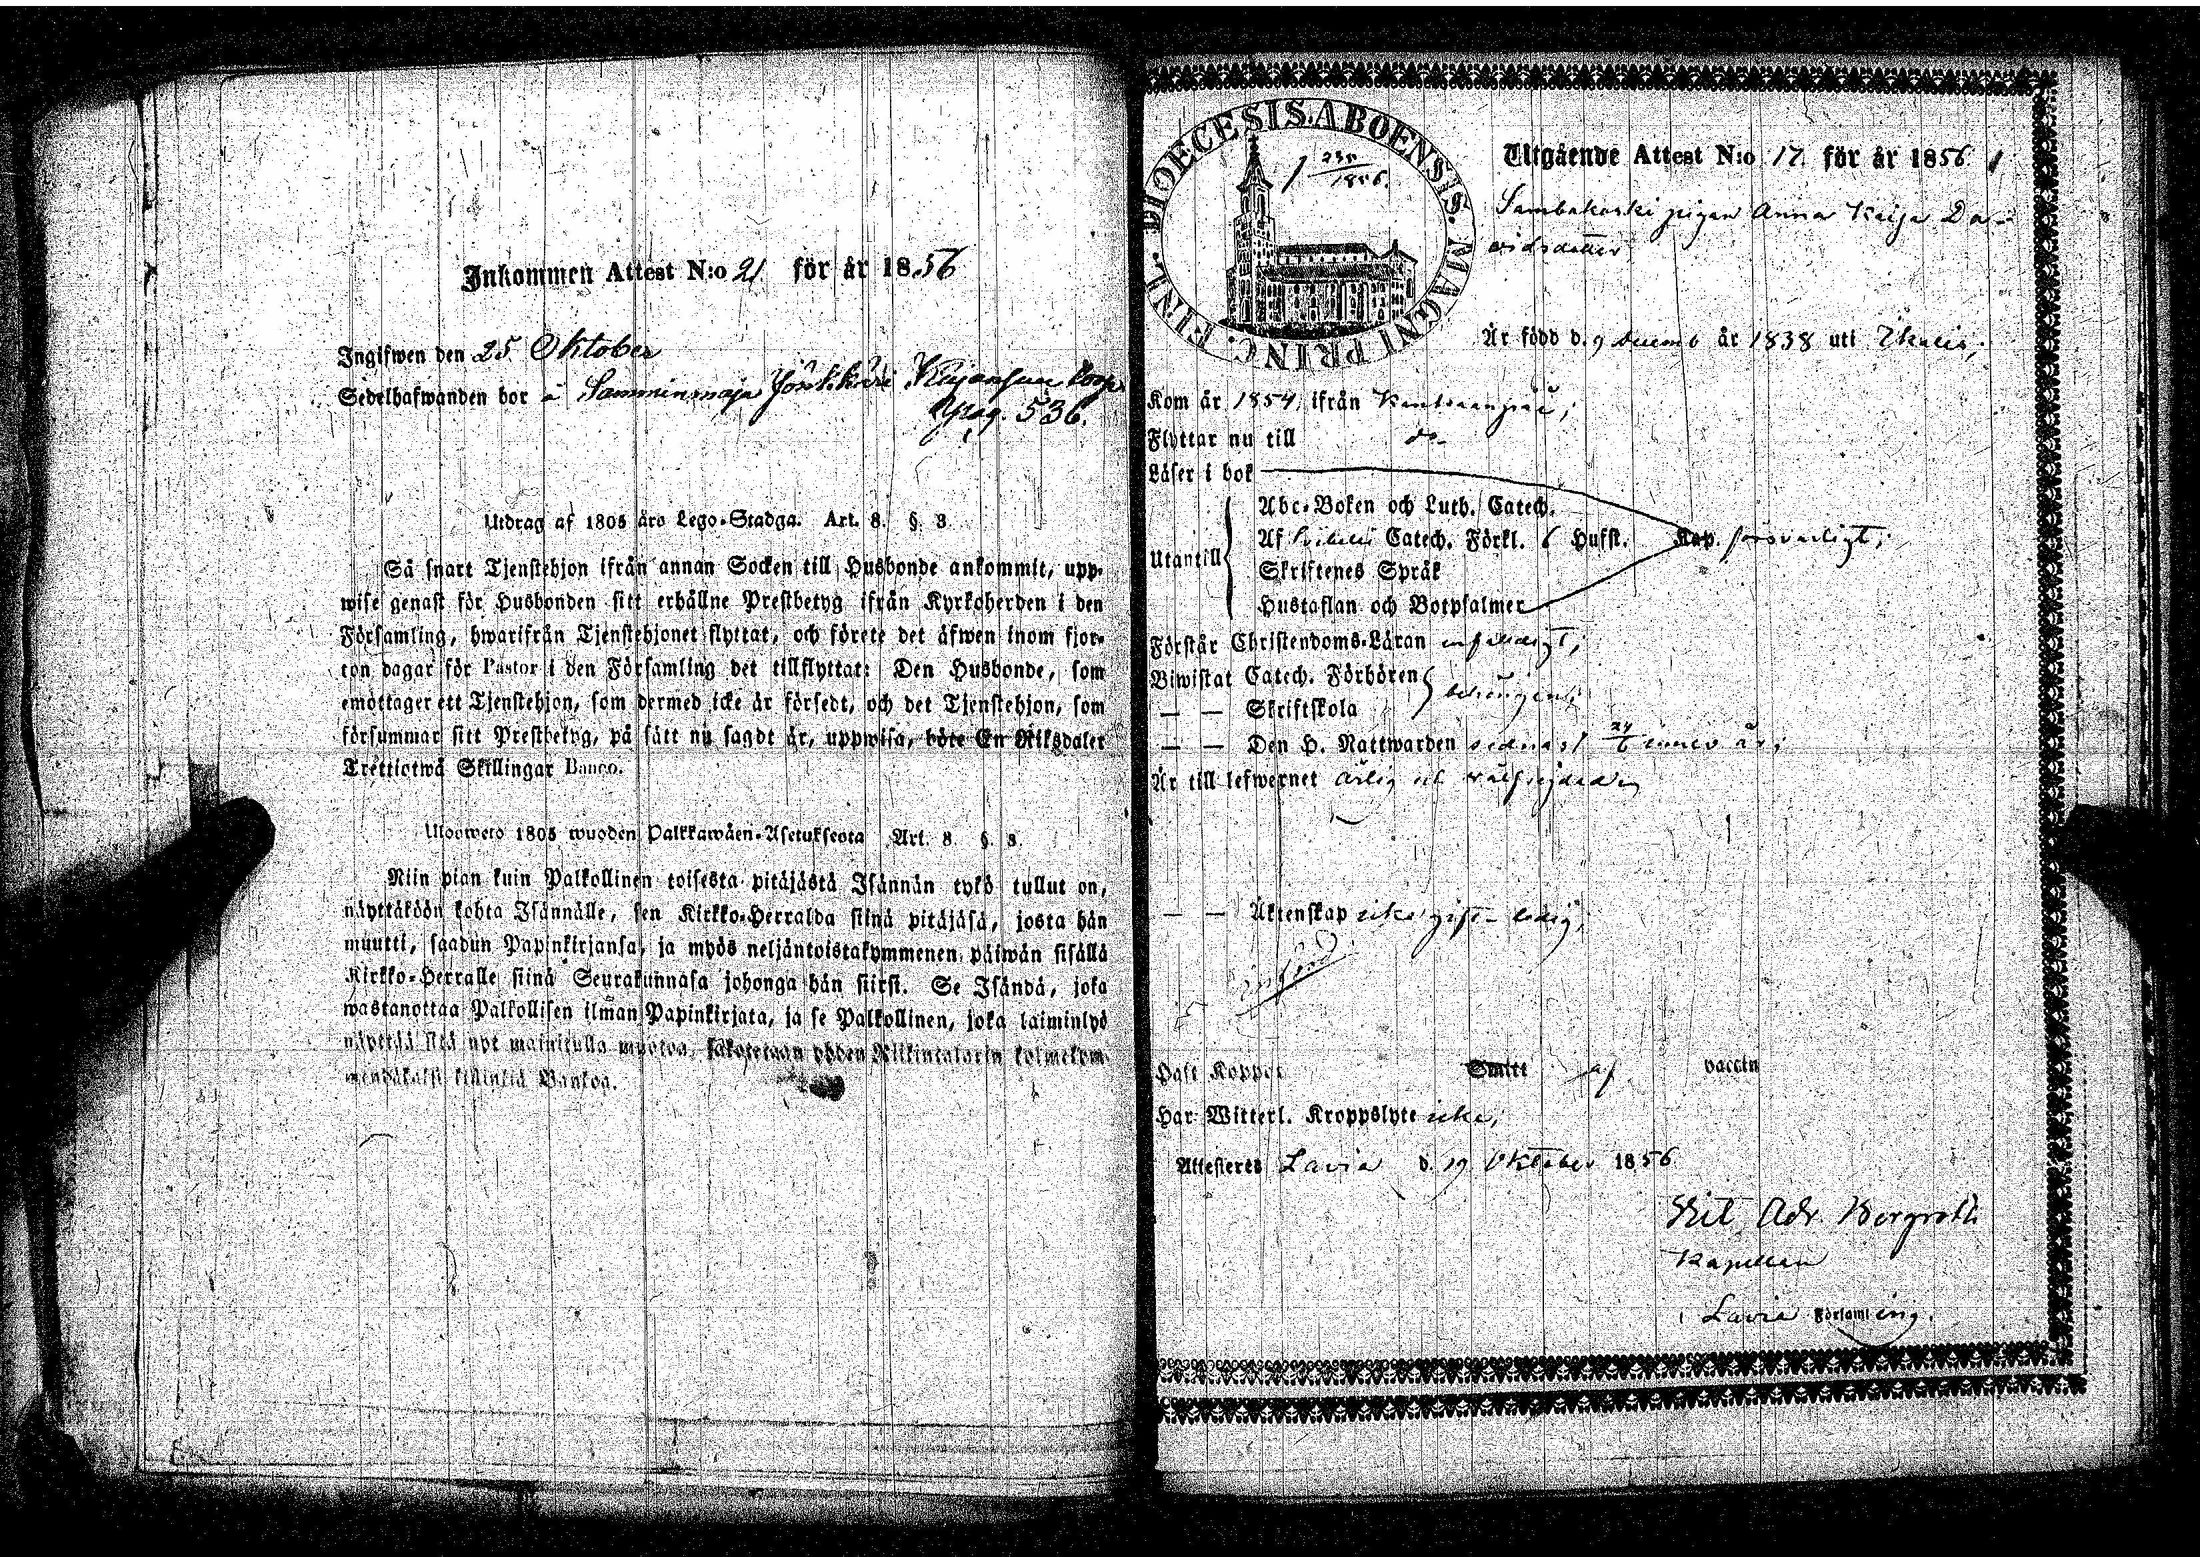 Inkommen Attest N:o 21 för år 1856
Ingifwen den 25 Oktober
Sedelhafwanden bor å Samminmaja
pag. 536.
Utdrag af 1805 års Lego-Stadga. Art. 8. §. 3.
Så snart Tjenstehjon ifrån annan Socken till Husbonde ankommit, upp-
wise genast för Husbonden sitt erhållne Prestbetyg ifrån Kyrkoherden i den
Församling, hwarifrån Tjenstehjonet flyttat, och förete det äfwen inom fjor-
ton dagar för Pastor i den Församling det tillflyttat: Den Husbonde, som
emottager ett Tjenstehjon, som dermed icke är försedt, och det Tjenstehjon, som
försummar sitt Prestbetyg, på sätt nu sagdt är, uppwisa, böte En Riksdaler
Trettiotwå Skillingar Banco.
Ulosweto 1805 wuoden Palkkawäen-Asetuksesta Art. 8. §. 3.
Niin pian kuin Palkollinen toisesta pitäjästä Isännän tykö tullut on,
näyttäköön kohta Isännälle, sen Kirkko-Herralda siinä pitäjäsä, josta hän
muutti, saadun Papinkirjansa, ja myös neljäntoistakymmenen päiwän sisällä
Kirkko-Herralle siinä Seurakunnasa johonga hän siirsi. Se Isändä, joka
wastanottaa Palkollisen ilman Papinkirjata, ja se Palkollinen, joka laiminlyö
näyttää sitä nyt mainitulla muotoa, sakotetaan yhden Riikintalarin kolmekym-
mendäkaksi killinkiä Bankoa.
DIOECESIS. ABOENSIS. MAGNI PRINC. FINL.
1 23/5 1856.
Utgående Attest N:o 17. för år 1856
pigan Anna Kaija Da-
vidsdotter
Är född d. 9 Decemb år 1838 uti Ikalis;
Kom år 1854 ifrån
Flyttar nu till do
Läser i bok
Abc-Boken och Luth. Catech.
Utantill Af Svibelii Catech. Förkl. 6 Hufst. Kap. försvarligt;
Skriftenes Språk
Hustaflan och Botpsalmer
Förstår Christendoms-Läran enfaldigt;
Biwistat Catech. Förhören
— — Skriftskola behörigen;
— — Den H. Nattwarden sednast 24/6 innev. år;
Är till lefwernet ärlig och välfrejdad
— — Äktenskap icke gift - ledig;
Haft Koppor Smitt af vaccin
Har Witterl. Kroppslyte icke;
Attesteres Lavia d. 19 Oktober 1856
Adr. Bergroth
Kapellan
i Lavia Församling.